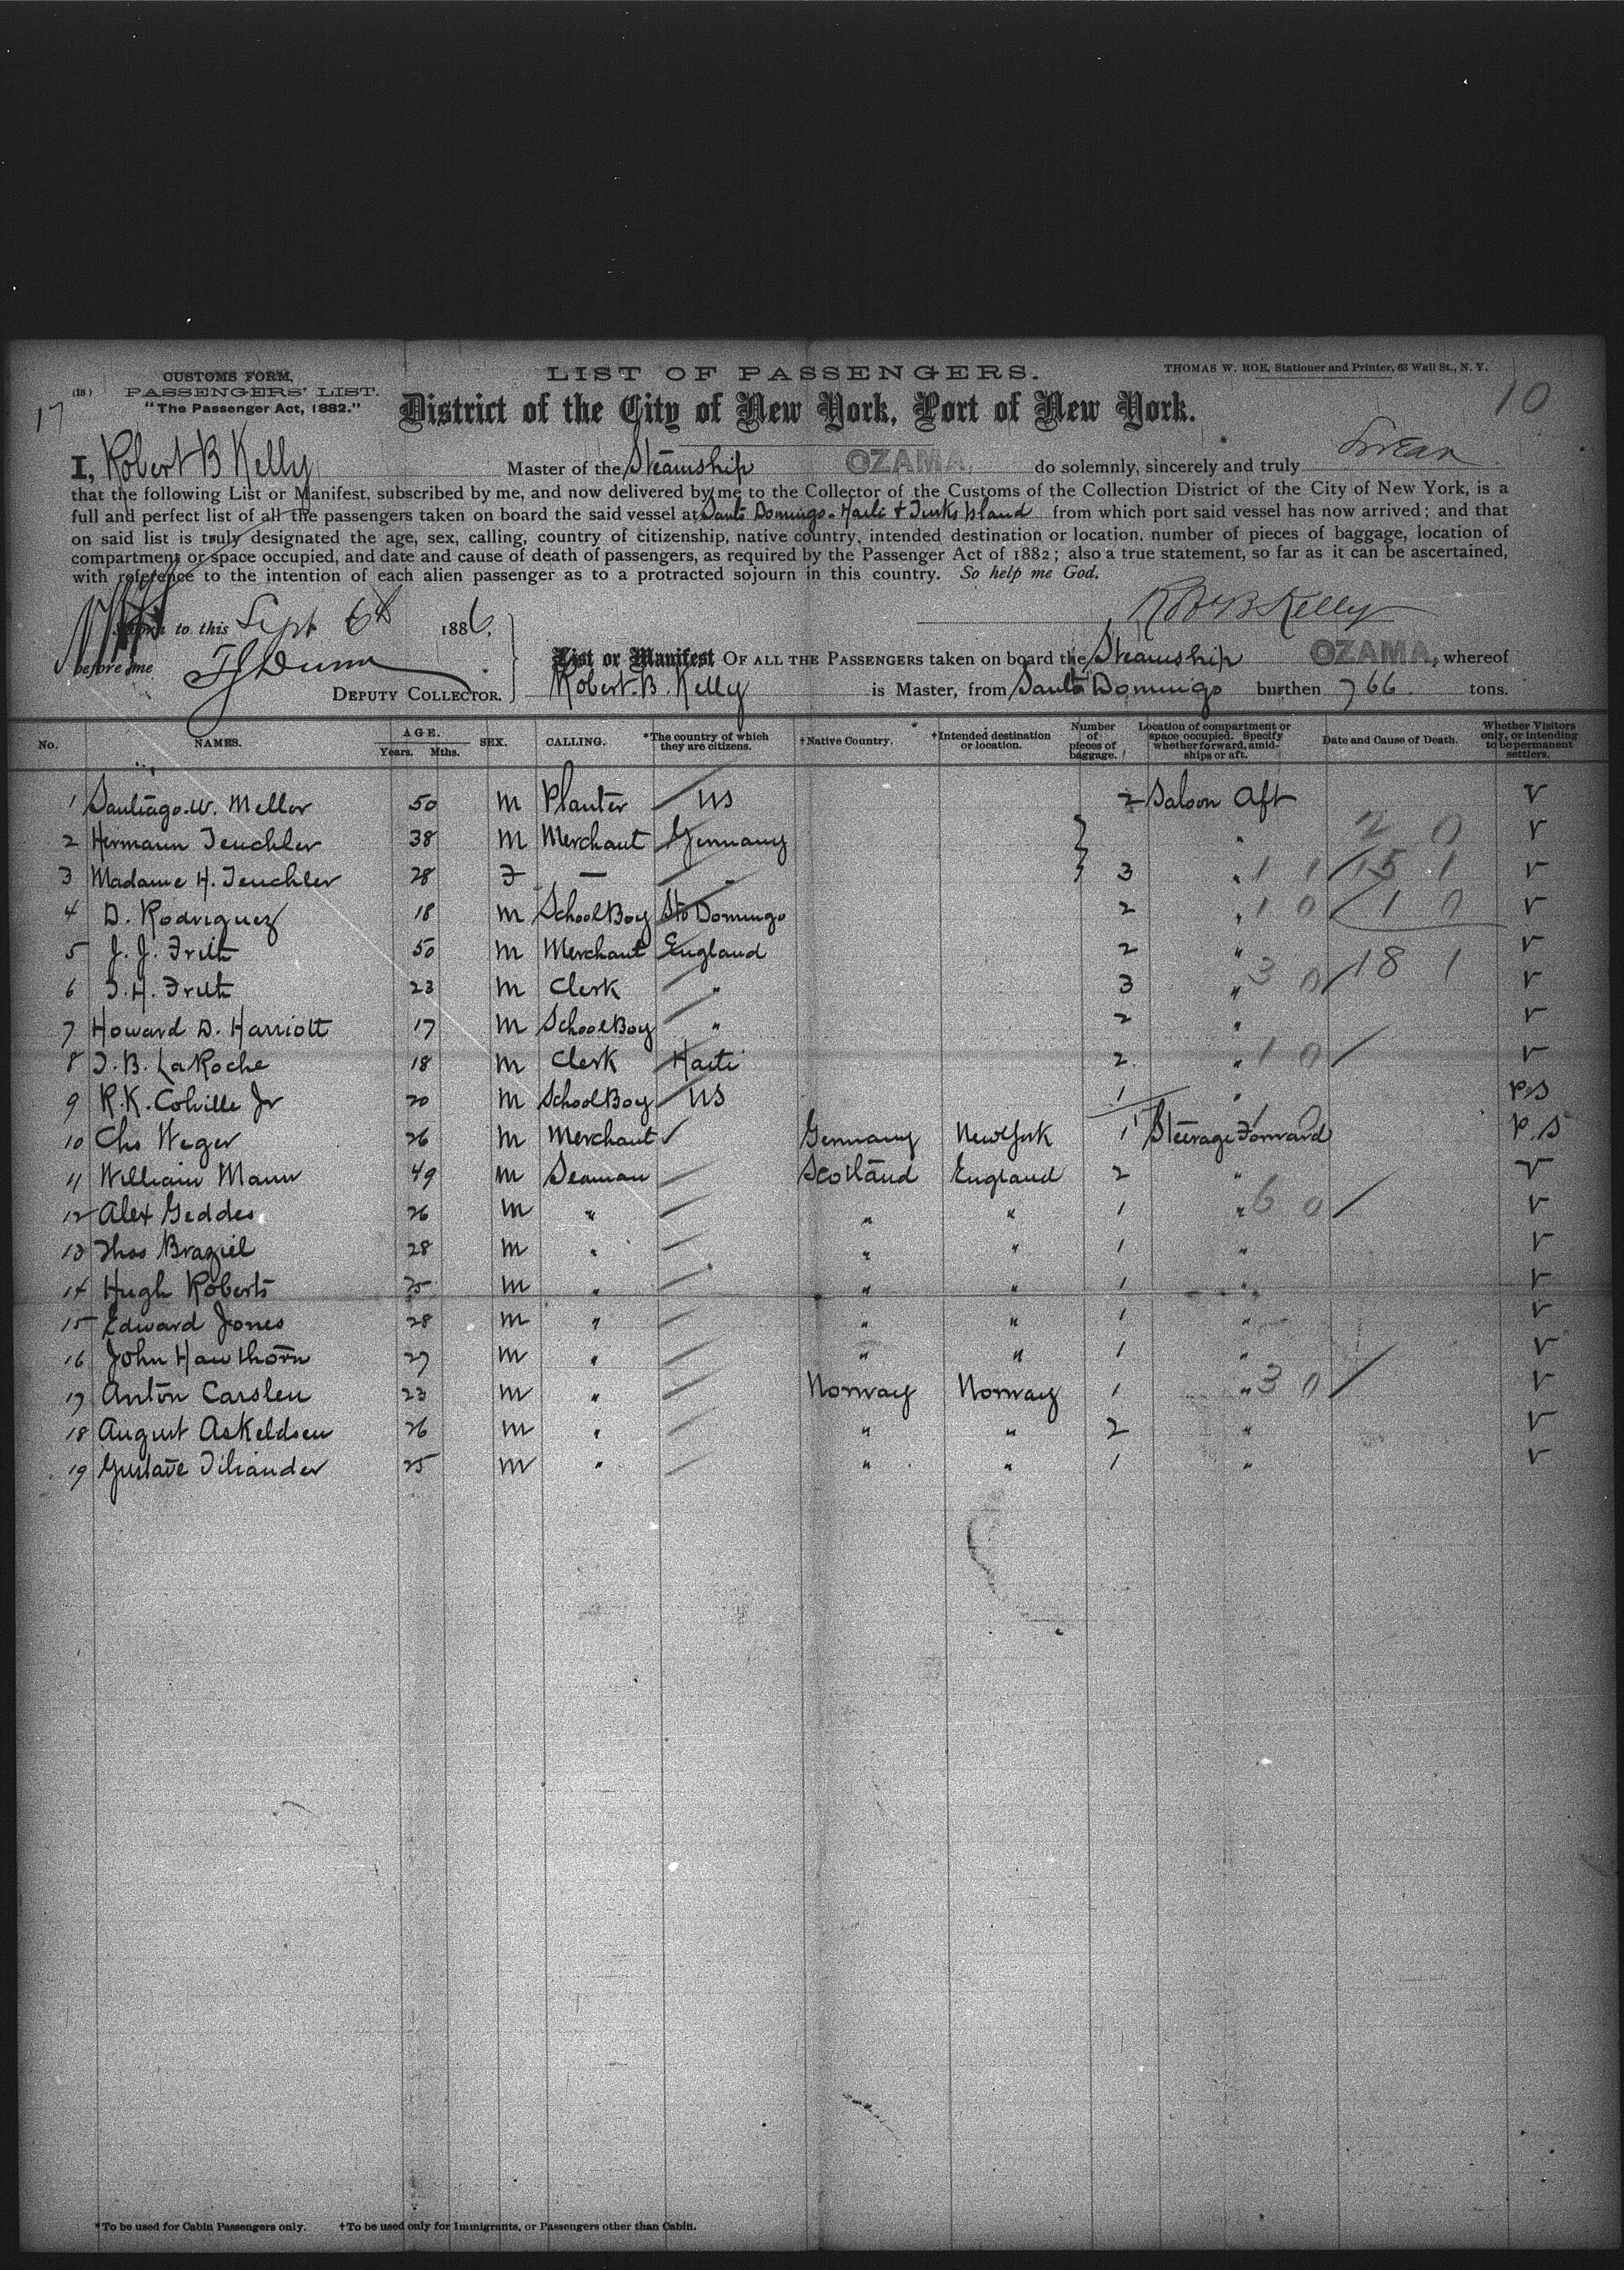 CUSTOMS FORM,
(18) PASSENGERS' LIST.
"The Passenger Act, 1882."
17
LIST OF PASSENGERS.
THOMAS W. ROE, Stationer and Printer, 63 Wall St., N. Y.
10
District of the City of New York, Port of New York.
I, Robert B Kelly Master of the Steamship OZAMA, do solemnly, sincerely and truly Swear
that the following List or Manifest, subscribed by me, and now delivered by me to the Collector of the Customs of the Collection District of the City of New York, is a
full and perfect list of all the passengers taken on board the said vessel at Santo Domingo - Haiti & Turks Island from which port said vessel has now arrived; and that
on said list is truly designated the age, sex, calling, country of citizenship, native country, intended destination or location, number of pieces of baggage, location of
compartment or space occupied, and date and cause of death of passengers, as required by the Passenger Act of 1882; also a true statement, so far as it can be ascertained,
with reference to the intention of each alien passenger as to a protracted sojourn in this country. So help me God.
Sworn to this Sept 6th 1886,
Robt B Kelly
before me TJ Dunn
DEPUTY COLLECTOR.
List or Manifest OF ALL THE PASSENGERS taken on board the Steamship OZAMA, whereof
Robert B. Kelly is Master, from Santo Domingo burthen 766 tons.
No. NAMES. AGE. Years. Mths. SEX. CALLING. *The country of which they are citizens. †Native Country. †Intended destination or location. Number of pieces of baggage. Location of compartment or space occupied. Specify whether forward, amid-ships or aft. Date and Cause of Death. Whether Visitors only, or intending to be permanent settlers.
1 Santiago W. Mellor 50 M Planter US 2 Saloon Aft V
2 Hermann Teuchler 38 M Merchant Germany " 2 0 V
3 Madame H. Teuchler 28 F — " 3 " 1 1 15 1 V
4 D. Rodriguez 18 M School Boy Sto Domingo 2 " 1 0 1 0 V
5 J. J. Frith 50 M Merchant England 2 " V
6 T. H. Frith 23 M Clerk " 3 " 3 0 18 1 V
7 Howard D. Harriott 17 M School Boy " 2 " V
8 T. B. LaRoche 18 M Clerk Haiti 2 " 1 0 V
9 R. K. Colville Jr 20 M School Boy US 1 " P.S
10 Chs Weger 26 M Merchant Germany New York 1 Steerage Forward 1 0 P.S
11 William Mann 49 M Seaman Scotland England 2 " V
12 Alex Geddes 26 M " " " 1 " 6 0 V
13 Thos Braziel 28 M " " " 1 " V
14 Hugh Roberts 25 M " " " 1 " V
15 Edward Jones 28 M " " " 1 " V
16 John Hawthorn 27 M " " " 1 " V
17 Anton Carslen 23 M " Norway Norway 1 " 3 0 V
18 August Askeldsen 26 M " " " 2 " V
19 Gustave Tiliander 25 M " " " 1 " V
*To be used for Cabin Passengers only. †To be used only for Immigrants, or Passengers other than Cabin.